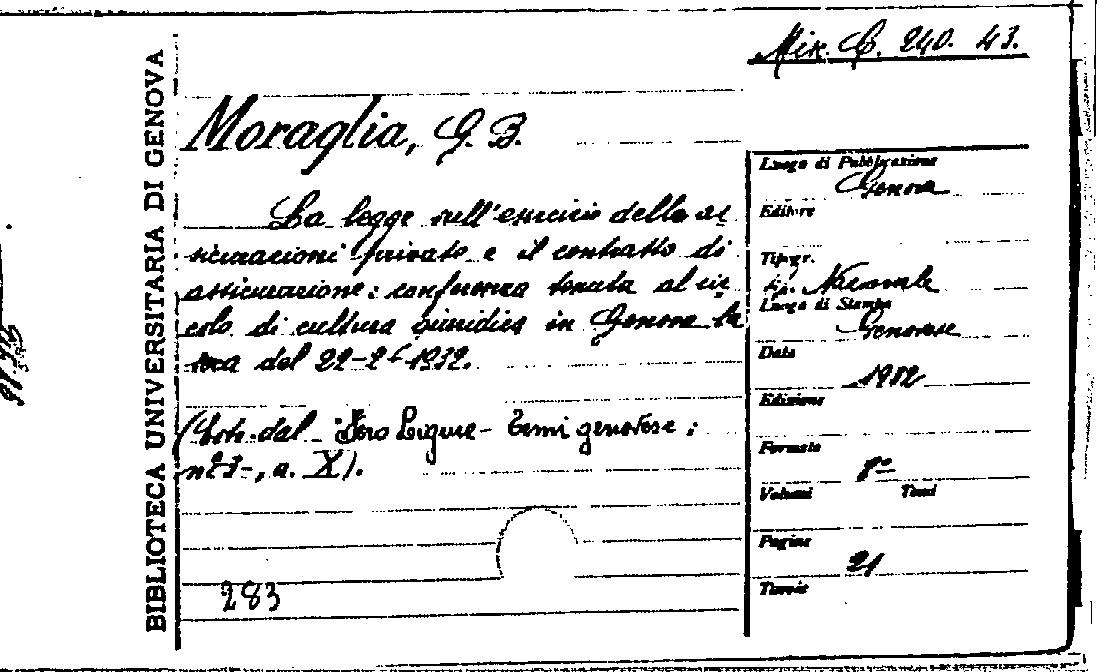 Mix. C. 240. 43.
BIBLIOTECA UNIVERSITARIA DI GENOVA
Moraglia, G. B.
La legge sull'esercizio delle as
sicurazioni private e il contratto di
assicurazione: conferenza tenuta al cir
colo di cultura giuridica in Genova la
sera del 22-2-1932.
(Estr. dal Foro Ligure - Temi genovese;
n° 3-, a. X).
283
Luogo di Pubblicazione
Genova
Editore
Tipogr.
Tip. Nazionale
Luogo di Stampa
Genovese
Data
1932
Edizione
Formato
8°
Volumi Tomi
Pagine
21
Tavole